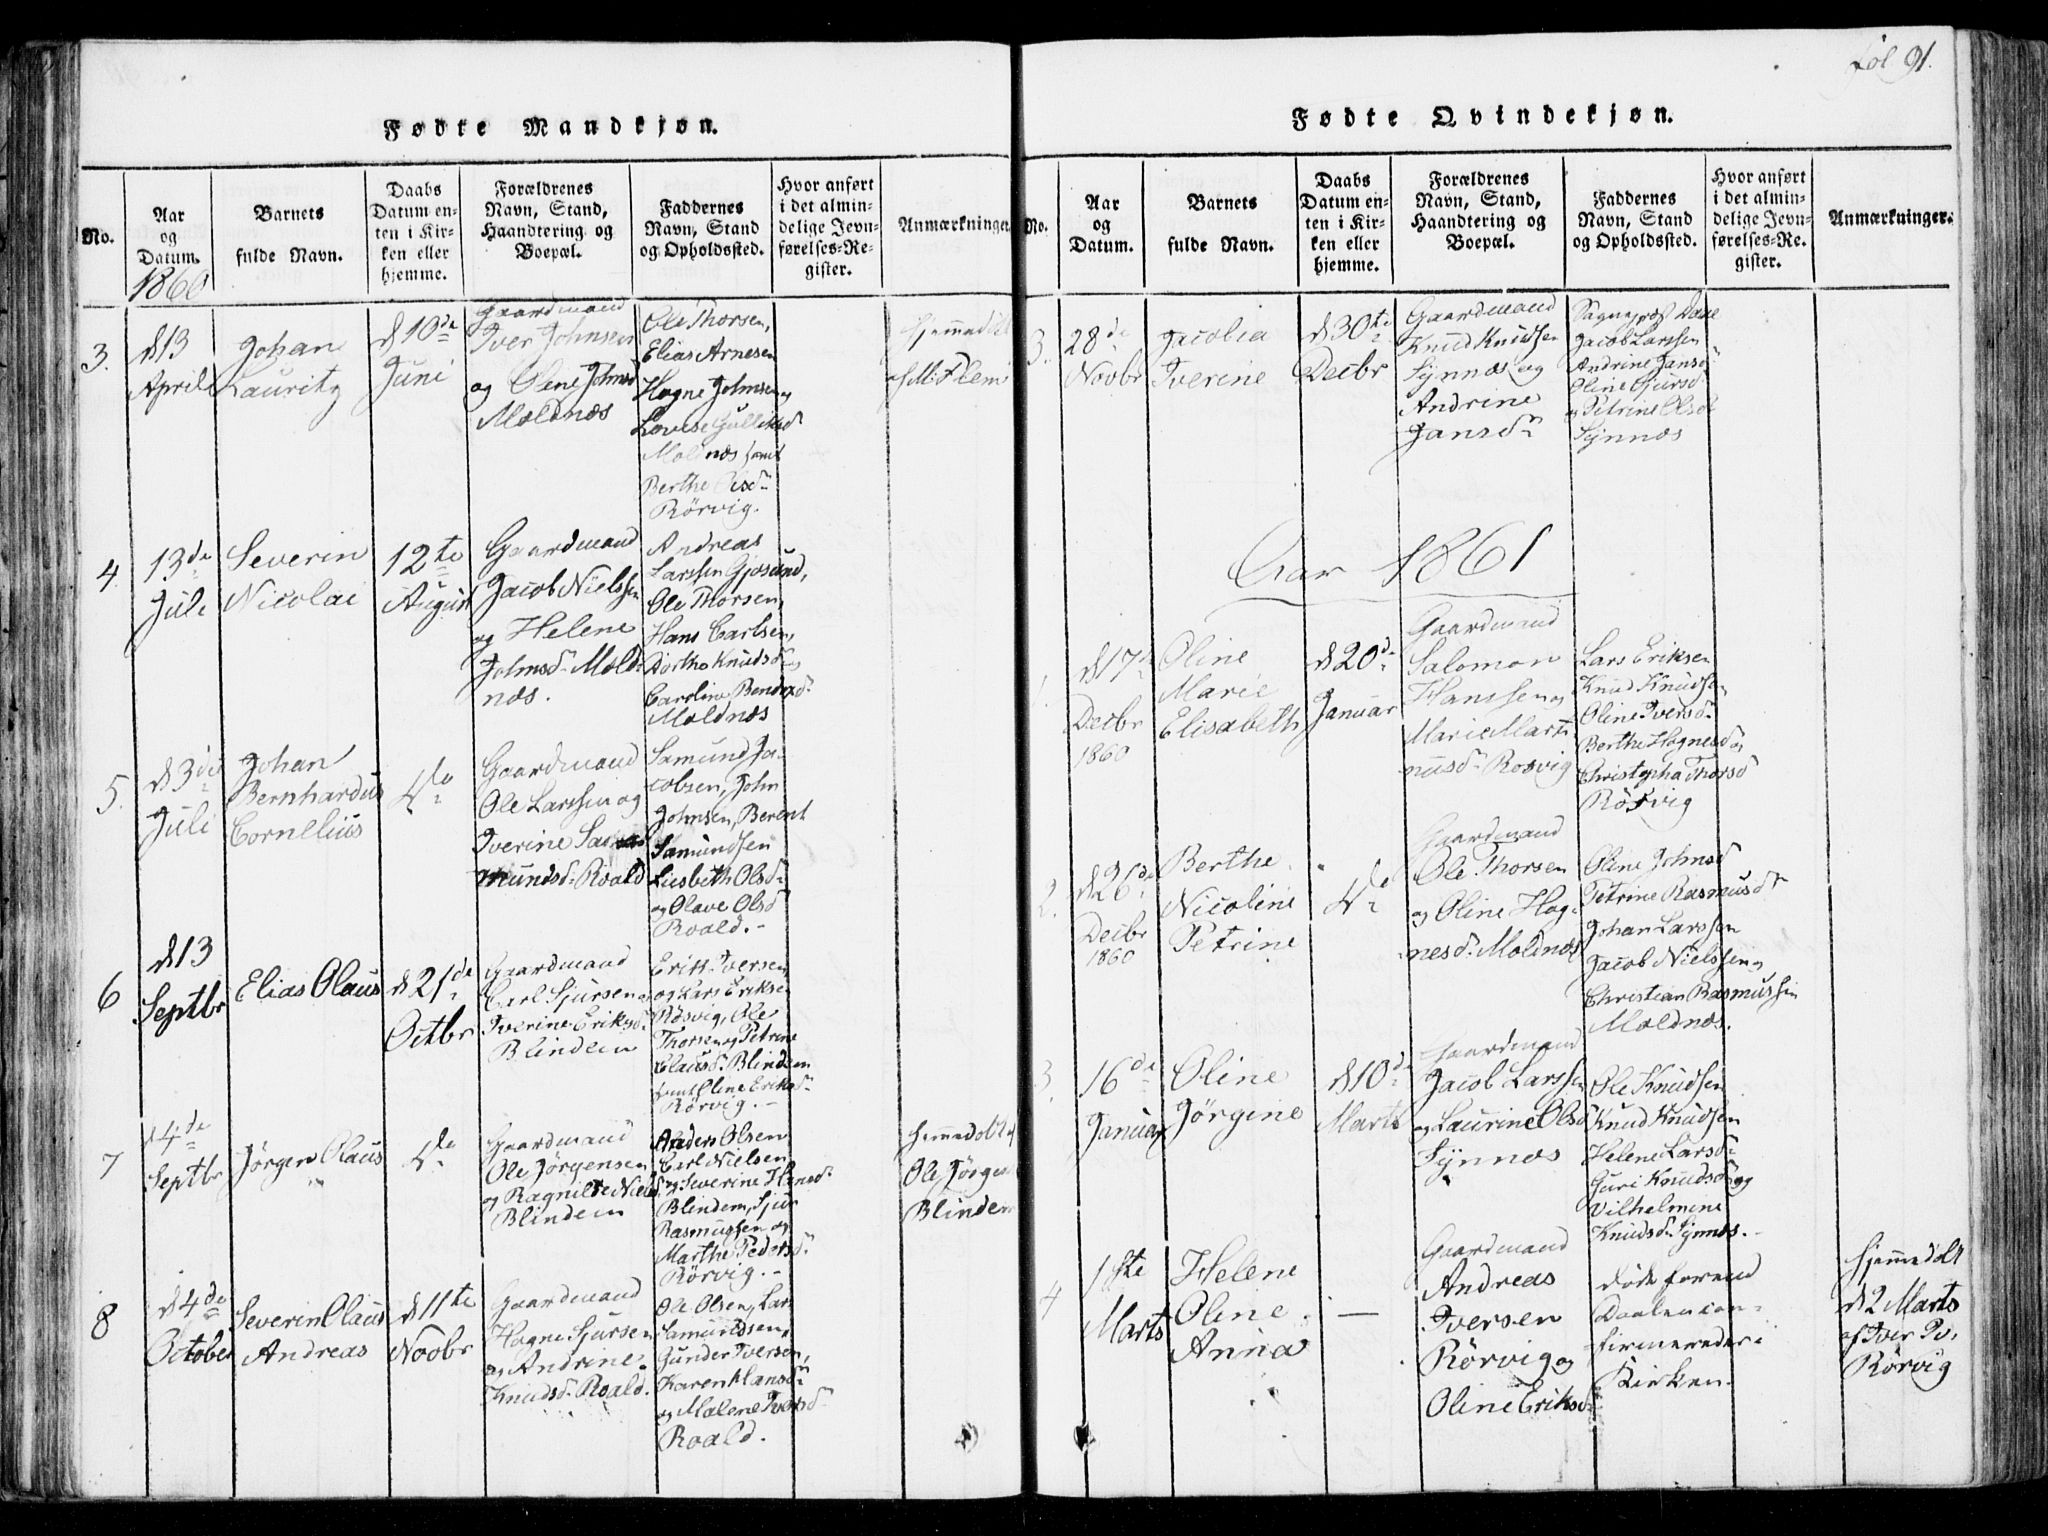 Fol 91.
Fødte Mandkjøn.
No.
Aar
og
Datum.
1860
Barnets
fulde Navn.
Daabs
Datum en-
ten i Kir-
ken eller
hjemme.
Forældrenes
Navn, Stand,
Haandtering og
Boepæl.
Faddernes
Navn, Stand
og Opholdssted.
Hvor anført
i det almin-
delige Jevn-
førelses-Re-
gister.
Anmærkninger
3.
d 13
April
Johan
Lauritz
d 10de
Juni
Gaardmand
Iver Johnsen
og Oline Johnsd
Moldnæs
Ole Thorsen,
Elias Arnesen
Hogne Johnsen
Lovise Gulliksd
Moldnæs samt
Berthe Olsdr
Rörvig.
hjemmedøbt
af M. Flem
4.
13de
Juli
Severin
Nicolai
12te
August
Gaardmand
Jacob Nielssen
og Helene
Johnsdr Mold-
næs.
Andreas
Larssen Gjøsund,
Ole Thorsen,
Hans Carlsen,
Dorthe Knudsdr
Caroline Bendixdr
Moldnæs
5.
d 3die
Juli
Johan
Bernhardus
Cornelius
do
Gaardmand
Ole Larssen og
Iverine Sa
mundsdr Roald
Samund Ja-
cobsen, John
Johnsen, Berent
Samundsen
Lisbeth Olsdr
og Olave Olsd
Roald.
6
d 13
Septbr
Elias Olaus
d 21de
Octbr
Gaardmand
Carl Sjursen
Iverine Eriksdr
Blindem
Erik Iversen
og Lars Eriksen
Rösvig, Ole
Thorsen og Petrine
Clausdr Blindem
samt Oline Eriksdr
Rörvig.
7
d 4de
Septbr
Jörgen Olaus
do
Gaardmand
Ole Jörgensen
og Ragnilde Nielsd
Blindem
Anders Olsen
Carl Nielsen
og Severine Hansdr
Blindem, Sjur
Rasmussen og
Marthe Pedersdr
Rörvig.
hjemmedøbt af
Ole Jörgens
Blindem
8
d 4de
October
Severin Olaus
Andreas
d 11te
Novbr
Gaardmand
Hogne Sjursen
og Andrine
Knudsdr Roald.
Ole Olsen, Lars
Samundsen,
Gunder Iversen,
Karen Hansdr
og Malene Iversdr
Roald.
Fødte Qvindekjøn.
No.
Aar
og
Datum.
Barnets
fulde Navn.
Daabs
Datum en-
ten i Kir-
ken eller
hjemme.
Forældrenes
Navn, Stand,
Haandtering og
Boepæl.
Faddernes
Navn, Stand
og Opholdssted.
Hvor anført
i det almin-
delige Jevn-
førelses-Re-
gister.
Anmærkninger.
3.
28de
Novbr
Jacobia
Iverine
d 30te
Decbr
Gaardmand
Knud Knudsen
Synnæs og
Andrine
Jansdr
Sagnepræst Dave
Jacob Larssen
Andrine Jansdr
Oline Sjursd
og Petrine Olsdr
Synnæs
Aar 1861
1.
d 17de
Decbr
1860
Oline
Marie
Elisabeth
d 20de
Januar
Gaardmand
Salomon
Hanssen og
Marie Marti
nusdr Rosvig
Lars Eriksen
Knud Knudsen
Oline Iversdr
Berthe Hognesd og
Christopha Thorsd
Rösvig
2.
d 26de
Decbr
1860
Berthe
Nicoline
Petrine
do
Gaardmand
Ole Thorsen
og Oline Hog-
nesdr Moldnæs
Oline Johnsd
Petrine Rasmusdr
Johan Larssen
Jacob Nielssen
Christian Rasmussen
Moldnæs.
3.
16de
Januar
Oline
Jörgine
d 10de
Marts
Gaardmand
Jacob Larssen
og Laurine Olsd
Synnæs
Ole Knudsen
Knud Knudsen
Helene Larsdr
Guri Knudsdr og
Vilhelmine
Knudsdr Synnæs.
4
1ste
Marts
Helene
Oline
Anna
—
Gaardmand
Andreas
Iversen
Rörvig og
Oline Eriksdr
døde forend
Daaben con-
firmeredes i
Kirken.
hjemmedøbt
d 2 Marts
af Iver Iv.
Rörvig